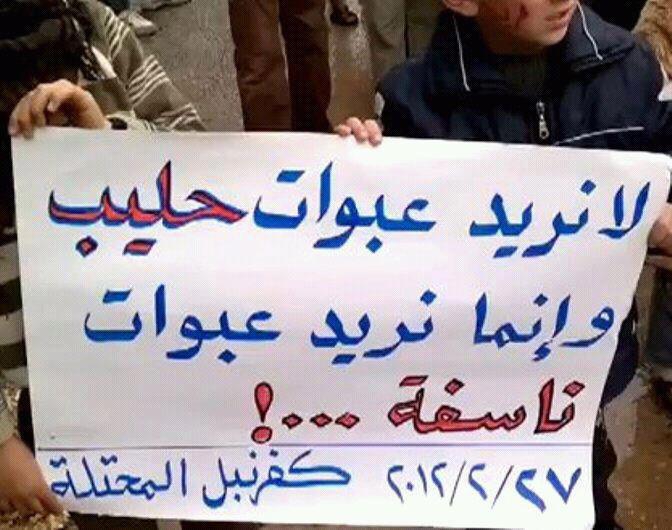 لا نريد عبوات حليب
وإنما نريد عبوات
ناسفة ...!
٢٧/٢/٢٠١٢ كفرنبل المحتلة